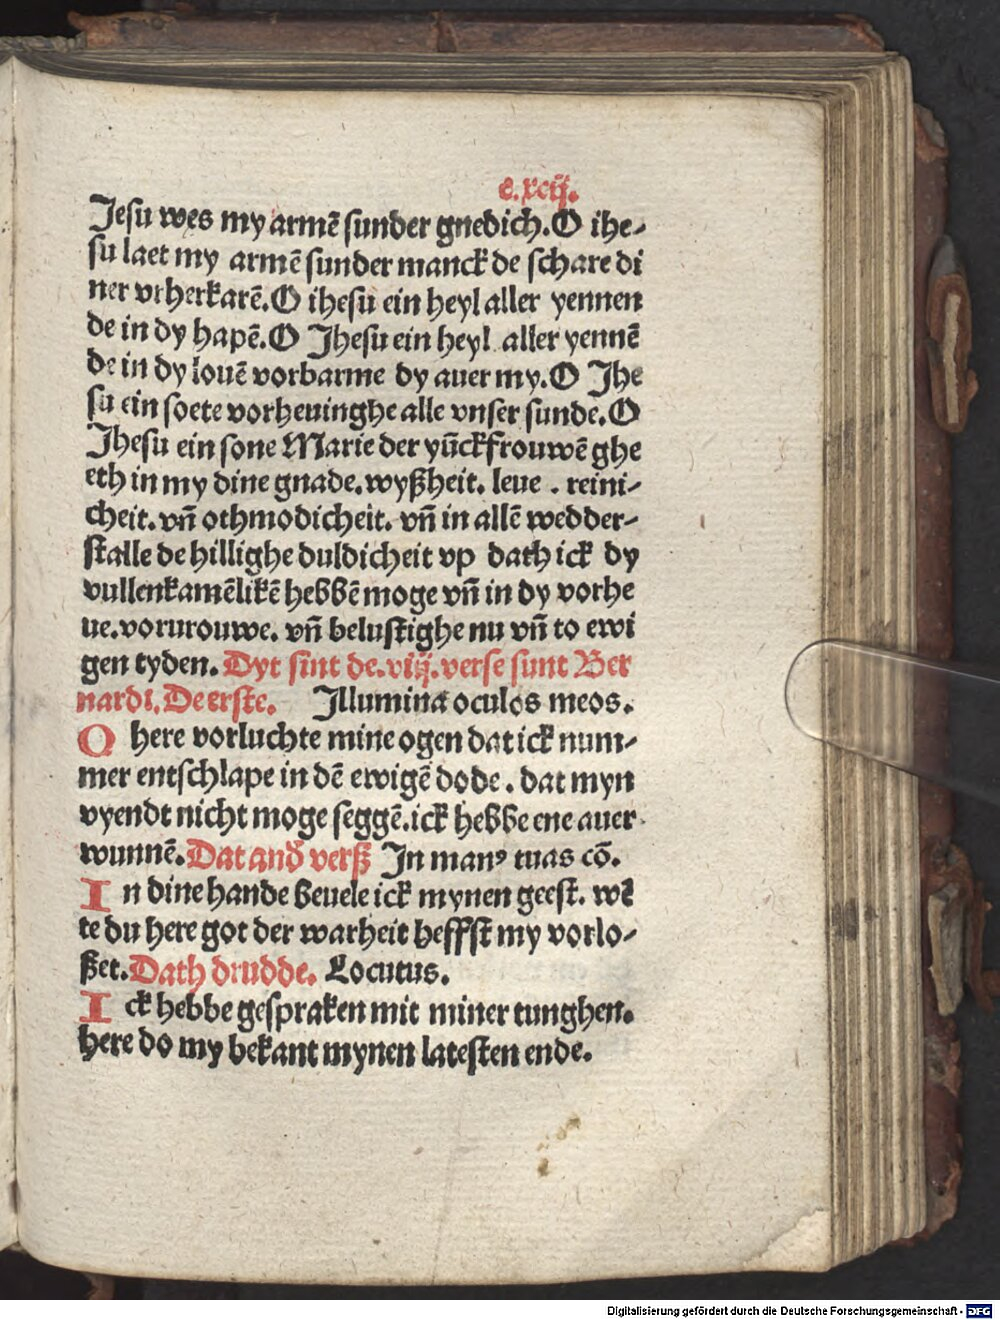 c.xcij.
Jesu wes my armē sunder gnedich. O ihe-
su laet my armē sunder manck de schare di
ner vtherkarē. O ihesu ein heyl aller yennen
de in dy hapē. O Jhesu ein heyl aller yennē
de in dy louē vorbarme dy auer my. O Jhe
su ein soete vorheuinghe alle vnser sunde. O
Jhesu ein sone Marie der yūckfrouwē ghe
eth in my dine gnade. wyßheit. leue. reini-
cheit. vñ othmodicheit. vñ in allē wedder-
stalle de hillighe duldicheit vp dath ick dy
vullenkamēlikē hebbē moge vñ in dy vorhe
ue. vorurouwe. vñ belustighe nu vñ to ewi
gen tyden. Dyt sint de. viij. verse sunt Ber
nardi. De erste. Jllumina oculos meos.
O here vorluchte mine ogen dat ick num-
mer entschlape in dē ewigē dode. dat myn
vyendt nicht moge seggē. ick hebbe ene auer
wunnē. Dat andʼ verß Jn manꝰ tuas cō.
In dine hande beuele ick mynen geest. wē
te du here got der warheit heffst my vorlo-
ßet. Dath drudde. Locutus.
Ick hebbe gespraken mit miner tunghen.
here do my bekant mynen latesten ende.
Digitalisierung gefördert durch die Deutsche Forschungsgemeinschaft - DFG